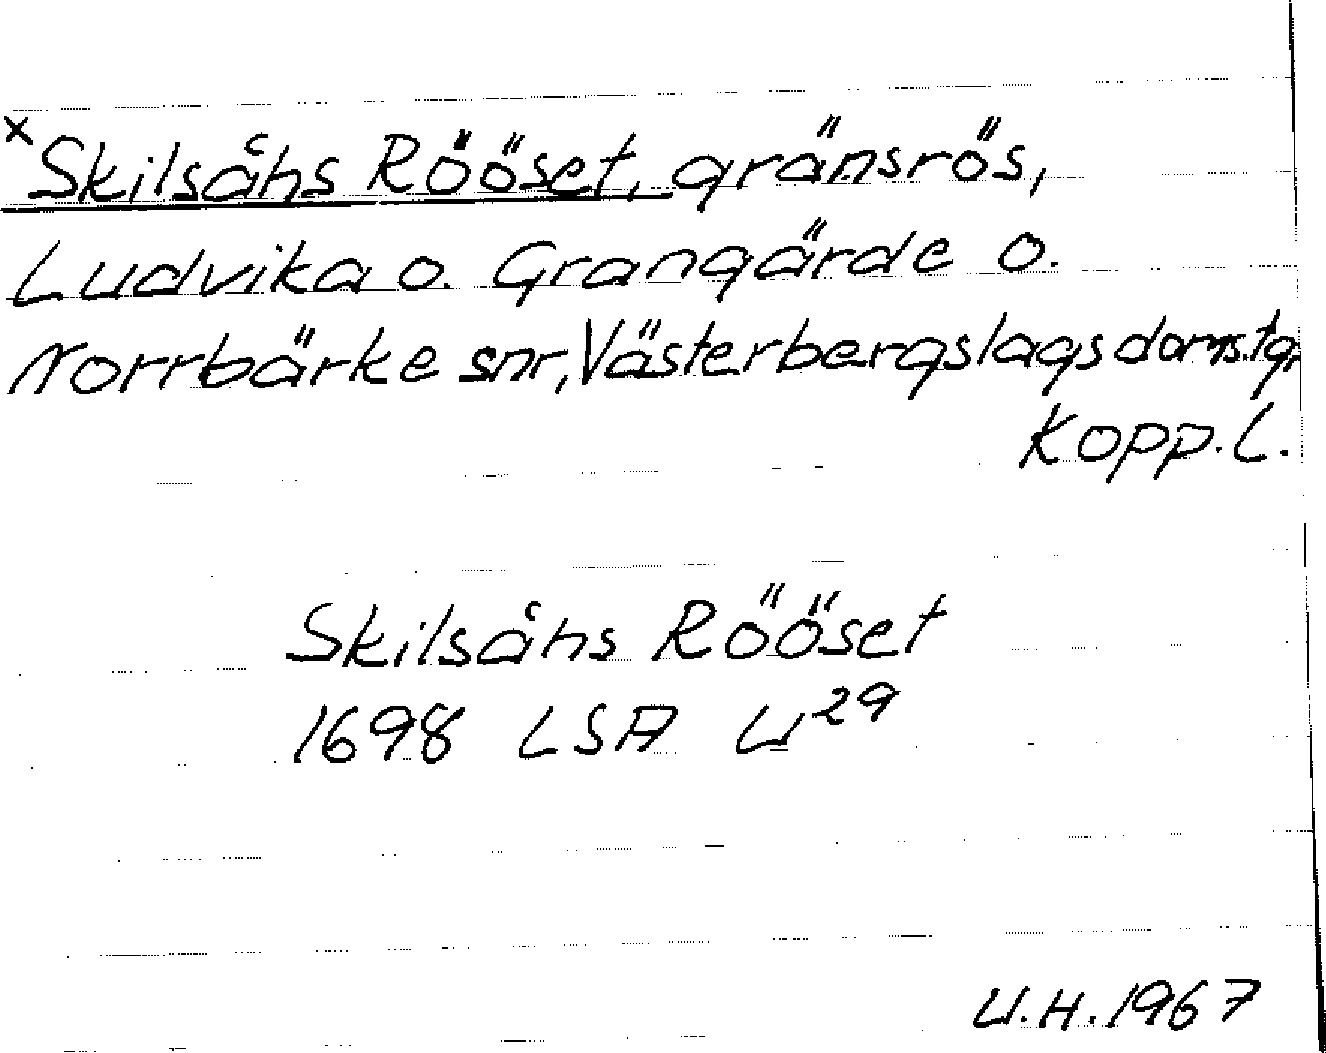 x Skilsåhs Rööset, gränsrös,
Ludvika o. Grangärde o.
Norrbärke snr, Västerbergslags doms.tg,
Kopp. L.
Skilsåhs Rööset
1698 LSA U²⁹
U.H. 1967